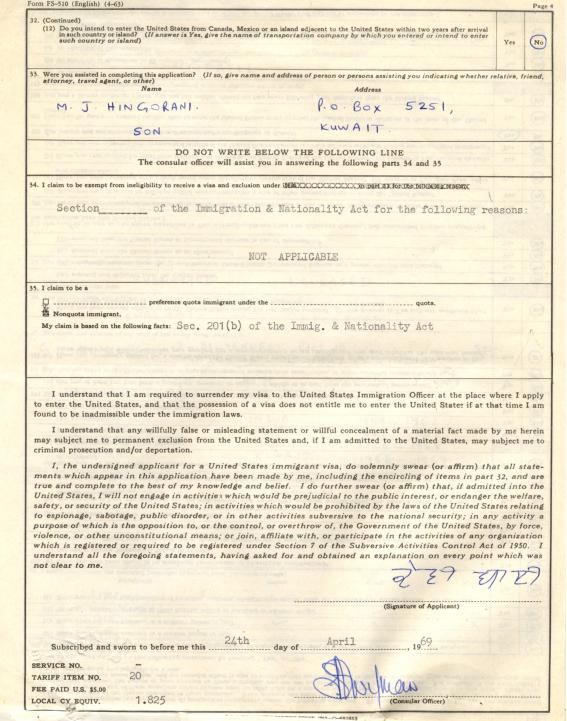 Form FS-510 (English) (4-63)
Page 4
32. (Continued)
(12) Do you intend to enter the United States from Canada, Mexico or an island adjacent to the United States within two years after arrival
in such country or island? (If answer is Yes, give the name of transportation company by which you entered or intend to enter
such country or island)
Yes
No
33. Were you assisted in completing this application? (If so, give name and address of person or persons assisting you indicating whether relative, friend,
attorney, travel agent, or other)
Name
Address
M. J. HINGORANI.
P.O. BOX 5251,
SON
KUWAIT.
DO NOT WRITE BELOW THE FOLLOWING LINE
The consular officer will assist you in answering the following parts 34 and 35
34. I claim to be exempt from ineligibility to receive a visa and exclusion under
Section_______ of the Immigration & Nationality Act for the following reasons:
NOT APPLICABLE
35. I claim to be a
preference quota immigrant under the quota.
Nonquota immigrant,
My claim is based on the following facts: Sec. 201(b) of the Immig. & Nationality Act
I understand that I am required to surrender my visa to the United States Immigration Officer at the place where I apply
to enter the United States, and that the possession of a visa does not entitle me to enter the United States if at that time I am
found to be inadmissible under the immigration laws.
I understand that any willfully false or misleading statement or willful concealment of a material fact made by me herein
may subject me to permanent exclusion from the United States and, if I am admitted to the United States, may subject me to
criminal prosecution and/or deportation.
I, the undersigned applicant for a United States immigrant visa, do solemnly swear (or affirm) that all state-
ments which appear in this application have been made by me, including the encircling of items in part 32, and are
true and complete to the best of my knowledge and belief. I do further swear (or affirm) that, if admitted into the
United States, I will not engage in activities which would be prejudicial to the public interest, or endanger the welfare,
safety, or security of the United States; in activities which would be prohibited by the laws of the United States relating
to espionage, sabotage, public disorder, or in other activities subversive to the national security; in any activity a
purpose of which is the opposition to, or the control, or overthrow of, the Government of the United States, by force,
violence, or other unconstitutional means; or join, affiliate with, or participate in the activities of any organization
which is registered or required to be registered under Section 7 of the Subversive Activities Control Act of 1950. I
understand all the foregoing statements, having asked for and obtained an explanation on every point which was
not clear to me.
(Signature of Applicant)
Subscribed and sworn to before me this 24th day of April, 1969
SERVICE NO. –
TARIFF ITEM NO. 20
FEE PAID U.S. $5.00
LOCAL CY EQUIV. 1.825
(Consular Officer)